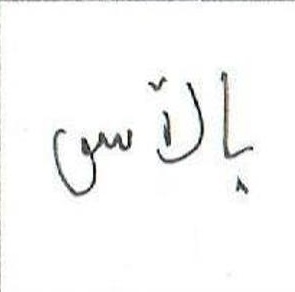 بالآس